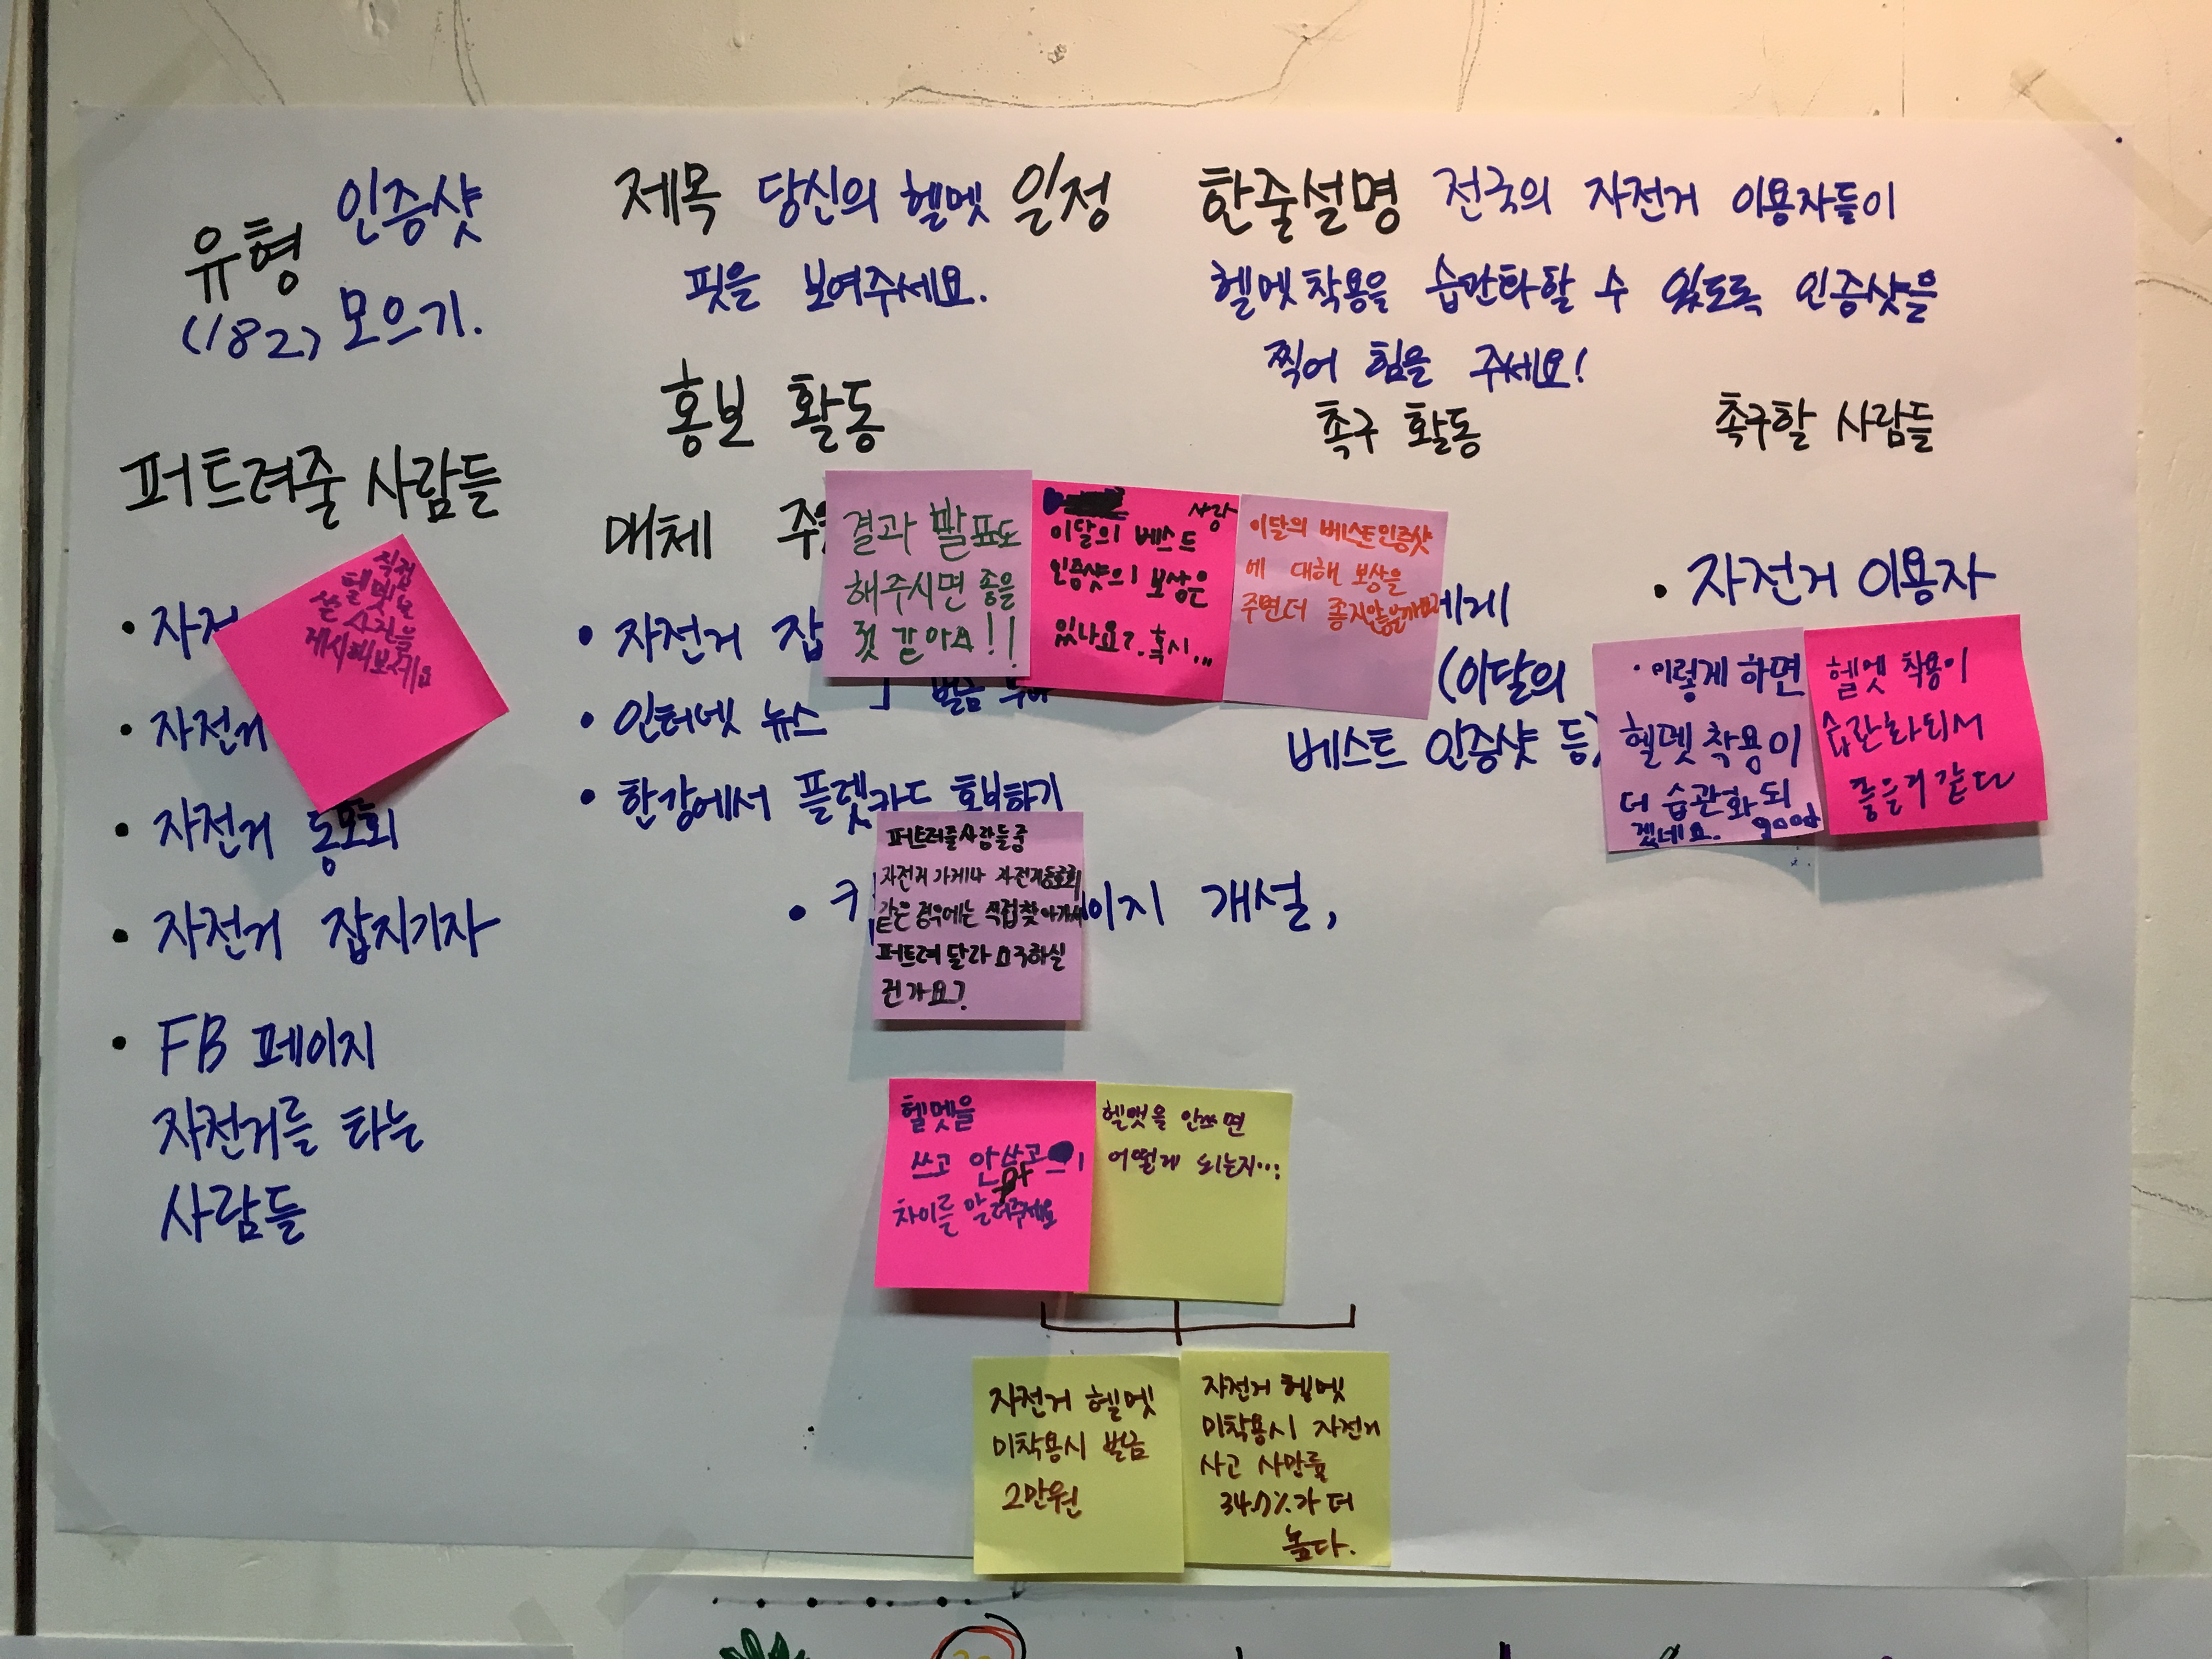 유형
(182)
인증샷
모으기.
제목 당신의 헬멧
핏을 보여주세요.
일정
한줄설명 전국의 자전거 이용자들이
헬멧착용을 습관화할 수 있도록 인증샷을
찍어 힘을 주세요!
퍼트려줄 사람들
• 자전
• 자전거
• 자전거 동호회
• 자전거 잡지기자
• FB 페이지
자전거를 타는
사람들
직접
헬멧도
쓴 사진을
게시해보세요
홍보 활동
매체
• 자전거 잡
• 인터넷 뉴스
벌금
• 한강에서 플랫카드 홍보하기
•
이지 개설,
결과 발표도
해주시면 좋을
것 같아요!!
사랑
이달의 베스트
인증샷의 보상은
있나요?. 혹시...
이달의 베스트인증샷
에 대해 보상을
주면더 좋지않을까요?
퍼트려줄사람들중
자전거 가게나 자전거동호회
같은 경우에는 직접찾아가서
퍼트려 달라 요구하실
건가요?
헬멧을
쓰고 안쓰고의
차이를 알려주세요
헬멧을 안쓰면
어떻게 되는지...
자전거 헬멧
미착용시 벌금
2만원
자전거 헬멧
미착용시 자전거
사고 사망률
가 더
높다.
촉구 활동
에게
(이달의
베스트 인증샷 등)
촉구할 사람들
• 자전거 이용자
· 이렇게 하면
헬멧착용이
더 습관화되
겠네요. good
헬멧 착용이
습관화되서
좋을거 같다